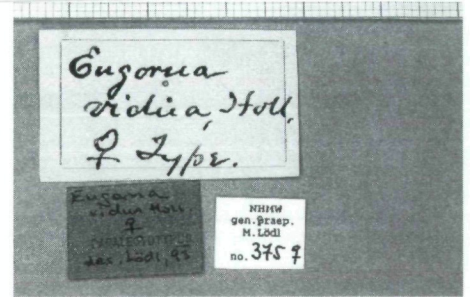 Eugorna
vidua, Holl,
♀ Type.
Eugoria
vidua Holl.
♀
des. Lödl, 95
NHMW
gen. praep.
M. Lödl
no. 375 ♀